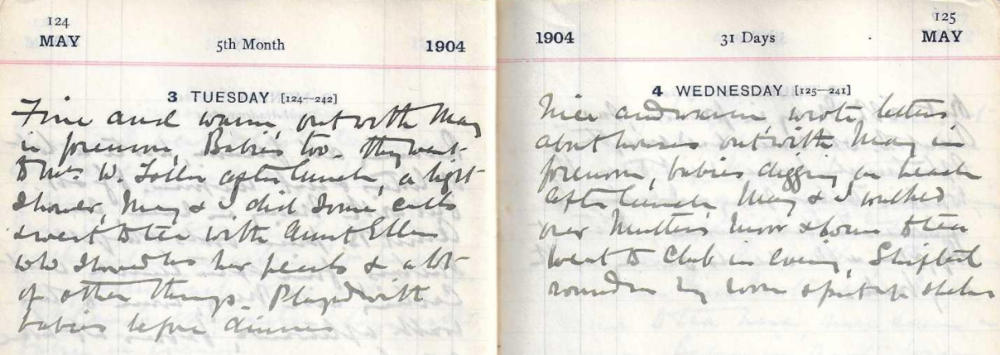 124
MAY
5th Month
1904
3 TUESDAY [124—242]
Fine and warm, out with May
in forenoon, Babies too. They went
to Mrs W. after lunch, a light
shower, May & I did some calls
& went to tea with Aunt Ellen
who showed us her pearls & a lot
of other things. Played with
babies before dinner
125
1904
31 Days
MAY
4 WEDNESDAY [125—241]
Nice and warm, wrote letters
about houses out with May in
forenoon, babies digging on beach
after lunch May & I walked
over moor & home to tea
Went to Club in evening,
round in my room & put up